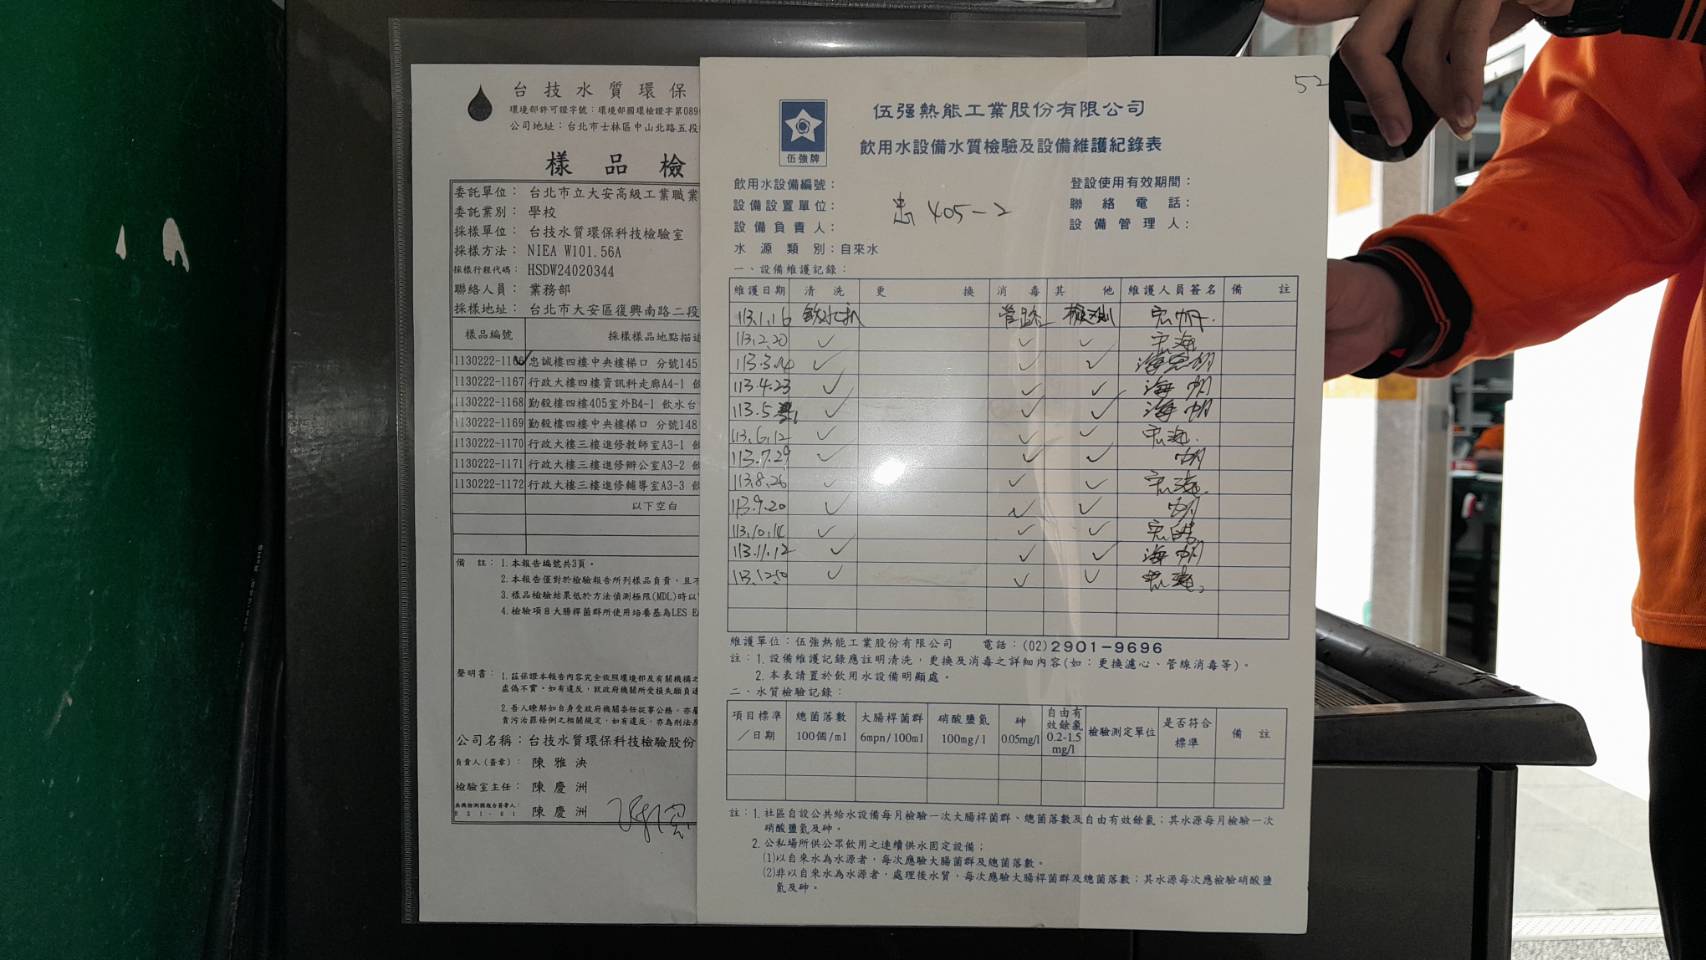 台技水質環保
環境部許可證字號：環境部國環檢證字第089
公司地址：台北市士林區中山北路五段
樣品檢
委託單位：台北市立大安高級工業職業
委託業別：學校
採樣單位：台技水質環保科技檢驗室
採樣方法：NIEA W101.56A
採樣行程代碼：HSDW24020344
聯絡人員：業務部
採樣地址：台北市大安區復興南路二段
樣品編號 採樣樣品地點描述
1130222-1166 忠誠樓四樓中央樓梯口 分號145
1130222-1167 行政大樓四樓資訊科走廊A4-1
1130222-1168 勤毅樓四樓405室外B4-1 飲水台
1130222-1169 勤毅樓四樓中央樓梯口 分號148
1130222-1170 行政大樓三樓進修教師室A3-1
1130222-1171 行政大樓三樓進修辦公室A3-2
1130222-1172 行政大樓三樓進修輔導室A3-3
以下空白
備 註：1.本報告編號共3頁。
2.本報告僅對於檢驗報告所列樣品負責，且不
3.樣品檢驗結果低於方法偵測極限(MDL)時以
4.檢驗項目大腸桿菌群所使用培養基為LES E
聲明書：1.茲保證本報告內容完全依照環境部及有關機構之
虛偽不實，如有違反，就政府機關所受損失願負連
2.吾人瞭解如自身受政府機關委任從事公務，亦屬
貪污治罪條例之相關規定，如有違反，亦為刑法
公司名稱：台技水質環保科技檢驗股份
負責人(簽章)：陳雅泱
檢驗室主任：陳慶洲
陳慶洲
52
伍強牌
伍强熱能工業股份有限公司
飲用水設備水質檢驗及設備維護紀錄表
飲用水設備編號：
登設使用有效期間：
設備設置單位：忠405-2
聯絡電話：
設備負責人：
設備管理人：
水源類別：自來水
一、設備維護記錄：
維護日期 清洗 更換 消毒 其他 維護人員簽名 備註
113.1.16 飲水机 管路 檢測 宏帆
113.2.20 ✓ ✓ ✓ 宏海
113.3.14 ✓ ✓ ✓
113.4.23 ✓ ✓ ✓ 海帆
113.5. ✓ ✓ ✓ 海帆
113.6.12 ✓ ✓ ✓ 宏海
113.7.29 ✓ ✓ ✓ 帆
113.8.26 ✓ ✓ ✓ 宏海
113.9.20 ✓ ✓ ✓ 帆
113.10.14 ✓ ✓ ✓
113.11.12 ✓ ✓ ✓ 海帆
113.12.10 ✓ ✓ ✓ 宏海
維護單位：伍強熱能工業股份有限公司 電話：(02)2901-9696
註：1.設備維護記錄應註明清洗，更換及消毒之詳細內容(如：更換濾心、管線消毒等)。
2.本表請置於飲用水設備明顯處。
二、水質檢驗記錄：
項目標準／日期 總菌落數 100個/ml 大腸桿菌群 6mpn/100ml 硝酸鹽氮 100mg/l 砷 0.05mg/l 自由有效餘氯 0.2-1.5 mg/l 檢驗測定單位 是否符合標準 備註
註：1.社區自設公共給水設備每月檢驗一次大腸桿菌群、總菌落數及自由有效餘氯；其水源每月檢驗一次
硝酸鹽氮及砷。
2.公私場所供公眾飲用之連續供水固定設備；
(1)以自來水為水源者，每次應驗大腸菌群及總菌落數。
(2)非以自來水為水源者，處理後水質，每次應驗大腸桿菌群及總菌落數；其水源每次應檢驗硝酸鹽
氮及砷。